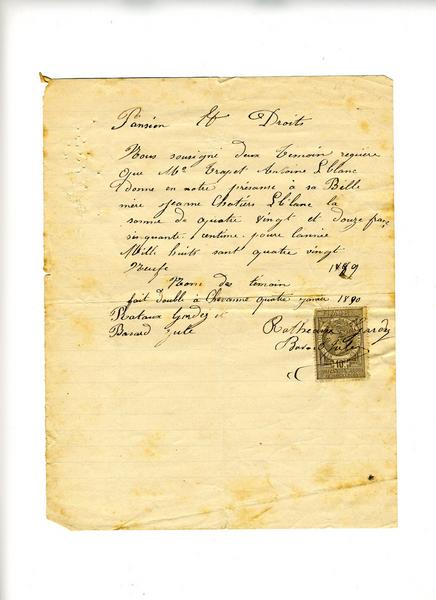 Pansion et Droits
Nous sousigné deux temoin requiere
que Mr Trapet Antoine Lblanc
donne en notre présanse à sa Bélle
mère Jeanne Chatiers Lblanc la
somme de quatre vingt et douze franc
sinquante centime poure l'année
Mille huits sant quatre vingt
Neufe 1889
Nome des témoin
fait double à Chevanne quatre janvié 1890
Rataux
Bavard Jule
10